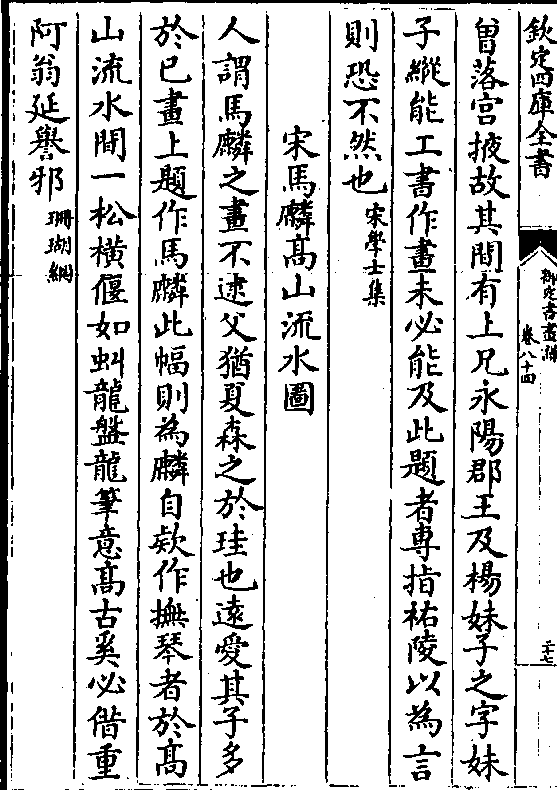 欽定四庫全書
御定書畫譜
卷八十四
二十七
曾落宫掖故其間有上兄永陽郡王及楊妹子之字妹
子縱能工書作畫未必能及此題者專指祐陵以為言
則恐不然也宋學士集
宋馬麟高山流水圖
人謂馬麟之畫不逮父猶夏森之於珪也遠愛其子多
於已畫上題作馬麟此幅則為麟自欵作撫琴者於高
山流水間一松橫偃如虯龍盤龍筆意高古奚必借重
阿翁延譽邪珊瑚網